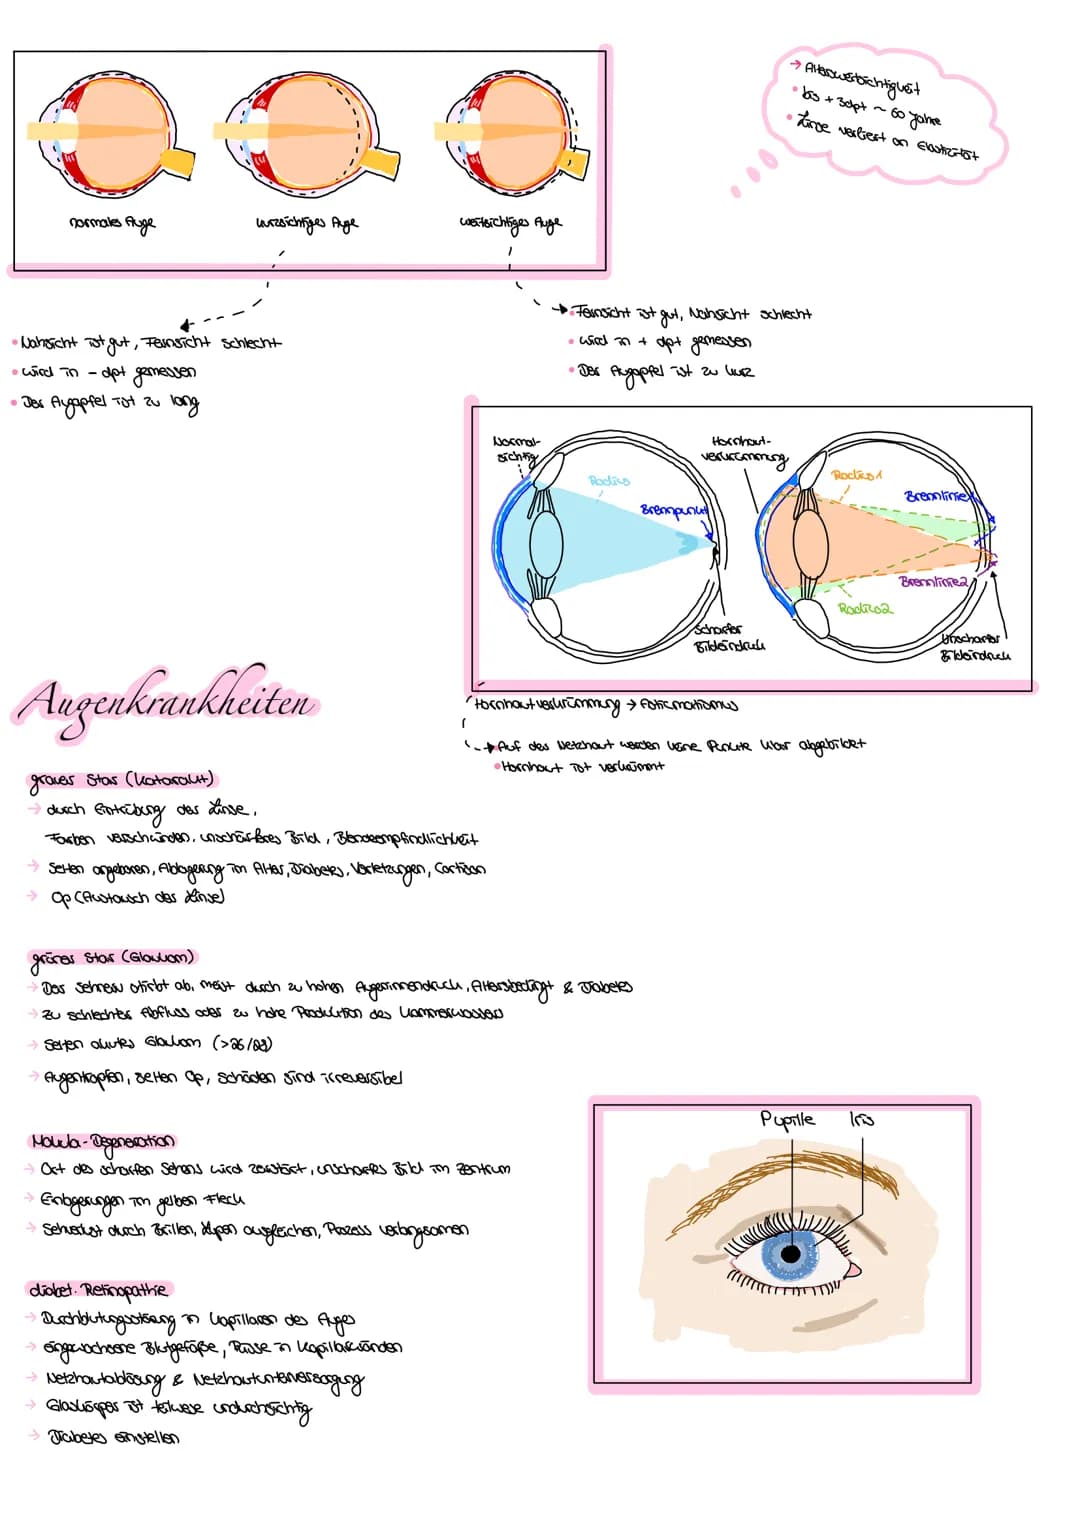 → Altersweitsichtigkeit
• bis + 3dpt ~ 60 Jahre
• Linse verliert an Elastizität
normales Auge
kurzsichtiges Auge
weitsichtiges Auge
• Nahsicht ist gut, Fernsicht schlecht
• wird in - dpt gemessen
• Der Augapfel ist zu lang
• Fernsicht ist gut, Nahsicht schlecht
• wird in + dpt gemessen
• Der Augapfel ist zu kurz
Normal-
sichtig
Radius
Brennpunkt
Scharfer
Bildeindruck
Hornhaut-
verkrümmung
Radius1
Brennlinie
Brennlinie2
Radius2
Unscharfer
Bildeindruck
Hornhautverkrümmung → Astigmatismus
Auf der Netzhaut werden keine Punkte klar abgebildet
• Hornhaut ist verkrümmt
Augenkrankheiten
grauer Star (Katarakt)
→ durch Eintrübung der Linse,
Farben verschwinden, unschärferes Bild, Blendempfindlichkeit
→ Selten angeboren, Ablagerung im Alter, Diabetes, Verletzungen, Cortison
→ Op (Austausch der Linse)
grüner Star (Glaukom)
→ Der Sehnerv stirbt ab, meist durch zu hohen Augeninnendruck, Altersbedingt & Diabetes
→ Zu schlechter Abfluss oder zu hohe Produktion des Kammerwassers
→ Selten akutes Glaukom
→ Augentropfen, selten Op, Schäden sind irreversibel
Makula-Degeneration
→ Ort des scharfen Sehens wird zerstört, unscharfes Bild im Zentrum
→ Einlagerungen im gelben Fleck
→ Sehverlust durch Brillen, Lupen ausgleichen, Prozess verlangsamen
diabet. Retinopathie
→ Durchblutungsstörung in Kapillaren des Auges
→ eingewachsene Blutgefäße, Risse in Kapillarwänden
→ Netzhautablösung & Netzhautunterversorgung
→ Glaskörper ist teilweise undurchsichtig
→ Diabetes einstellen
Pupille Iris